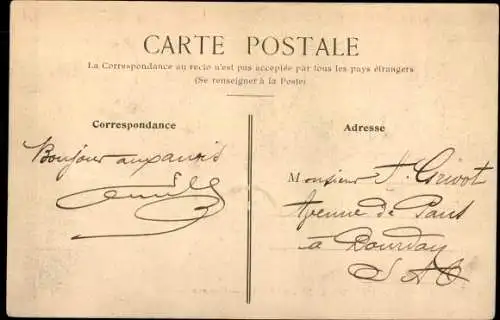 CARTE POSTALE
La Correspondance au recto n'est pas acceptée par tous les pays étrangers
(Se renseigner à la Poste)
Correspondance
Adresse
Bonjour aux amis
Monsieur Grivot
Avenue de Paris
à Dourdan
S & O